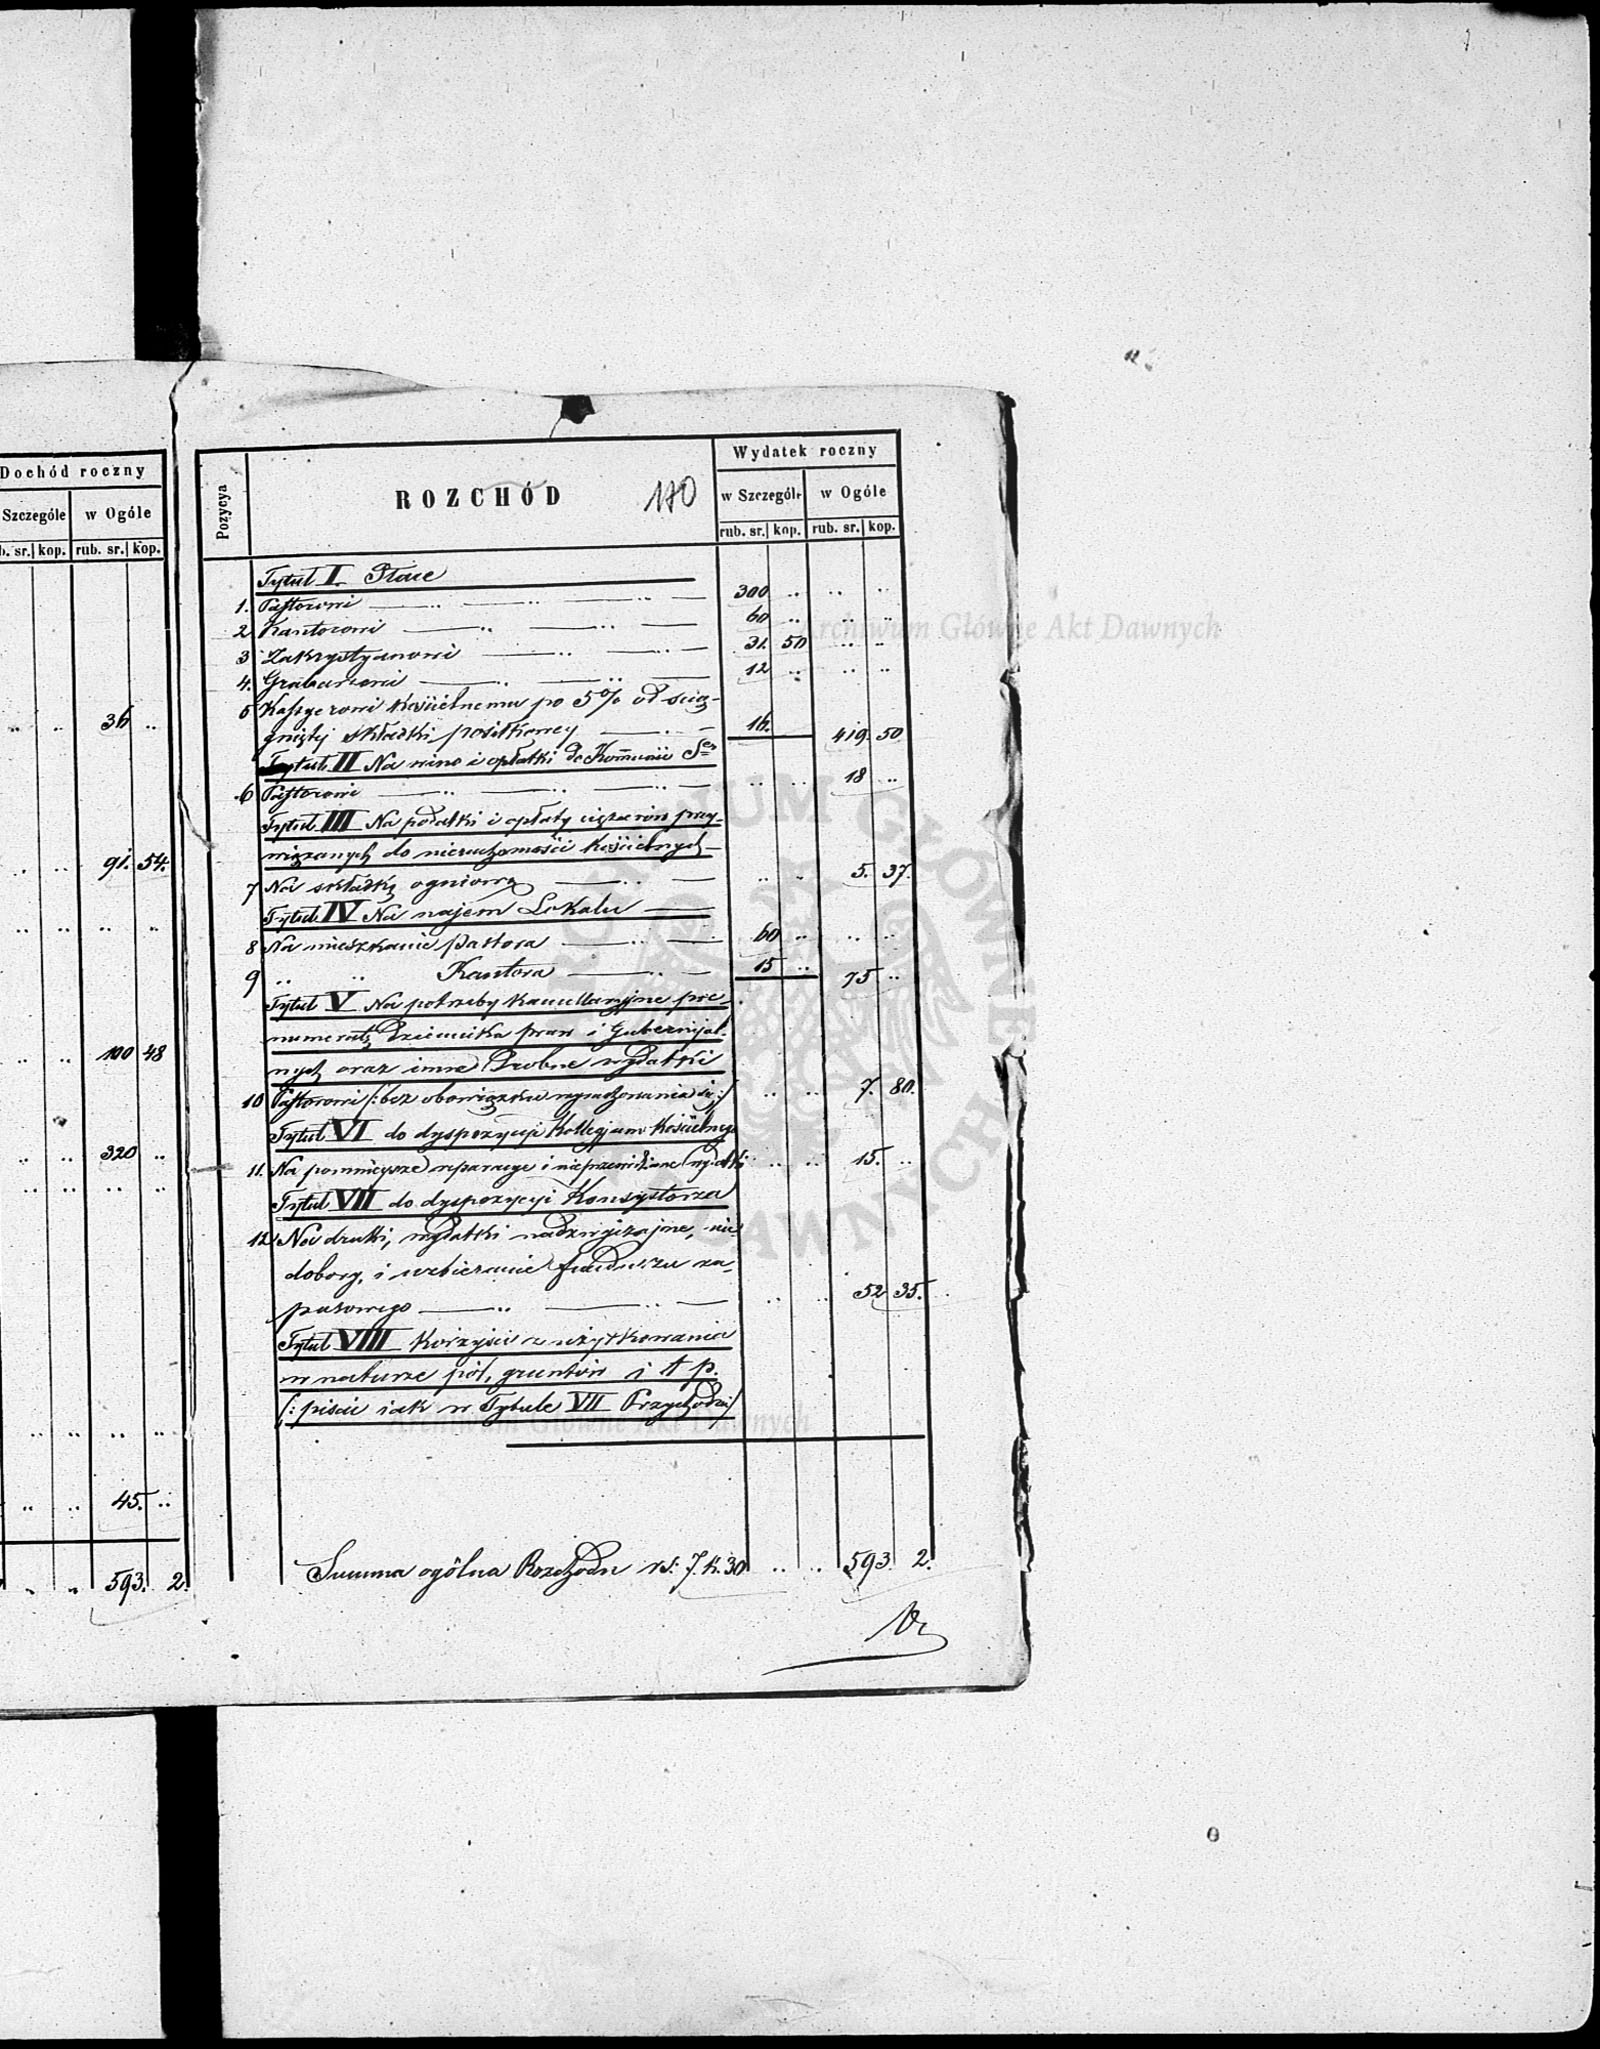 Dochód roczny
Szczególe w Ogóle
b. sr. kop. rub. sr. kop.
.. .. 36 ..
.. .. 91. 54.
.. .. .. ..
.. .. 100 48
.. .. 320 ..
.. .. .. ..
.. .. .. ..
.. .. 45. ..
.. .. 593. 2.
Pozycya ROZCHÓD 170 Wydatek roczny
w Szczególe w Ogóle
rub. sr. kop. rub. sr. kop.
Tytuł I. Płace
1. Pastorowi 300 .. .. ..
2 Kantorowi 60 .. .. ..
3 Zakrystyanowi 31. 50 .. ..
4. Grabarzowi 12 .. .. ..
5 Kassyerowi kościelnemu po 5% od ścią-
gniętej składki posiłkowey 16. 419. 50
Tytuł II Na wino i opłatki do Kommunii Sej
6 Pastorowi .. .. 18 ..
Tytuł III Na podatki i opłaty ciężarów przy-
wiązanych do nieruchomości kościelnych
7 Na składkę ogniową .. .. 5. 37.
Tytuł IV Na najem Lokalu
8 Na mieszkanie pastora 60 .. .. ..
9 .. .. Kantora 15 .. 75 ..
Tytuł V Na potrzeby kancellaryjne pre-
numeratę Dziennika praw i Gubernijal-
nych oraz inne Drobne wydatki
10 Pastorowi (: bez obowiązku wyrachowania się :) .. .. 7. 80.
Tytuł VI do dyspozycyi Kollegjum Kościelnego
11. Na pomniejsze reparacye i nieprzewidziane wydatki .. .. 15. ..
Tytuł VII do dyspozycyi Konsystorza
12 Na druki, wydatki nadzwyczajne, nie-
dobory, i uzbieranie funduszu za-
pasowego .. .. 52 35.
Tytuł VIII Korzyści z użytkowania
w naturze pól, gruntów i t p.
(: piscie jak w Tytule VII Przychodu :)
Summa ogólna Rozchodu rs: 7. k. 30 .. .. 593 2.
Archiwum Główne Akt Dawnych
Archiwum Główne Akt Dawnych
ARCHIWUM GŁÓWNE AKT DAWNYCH